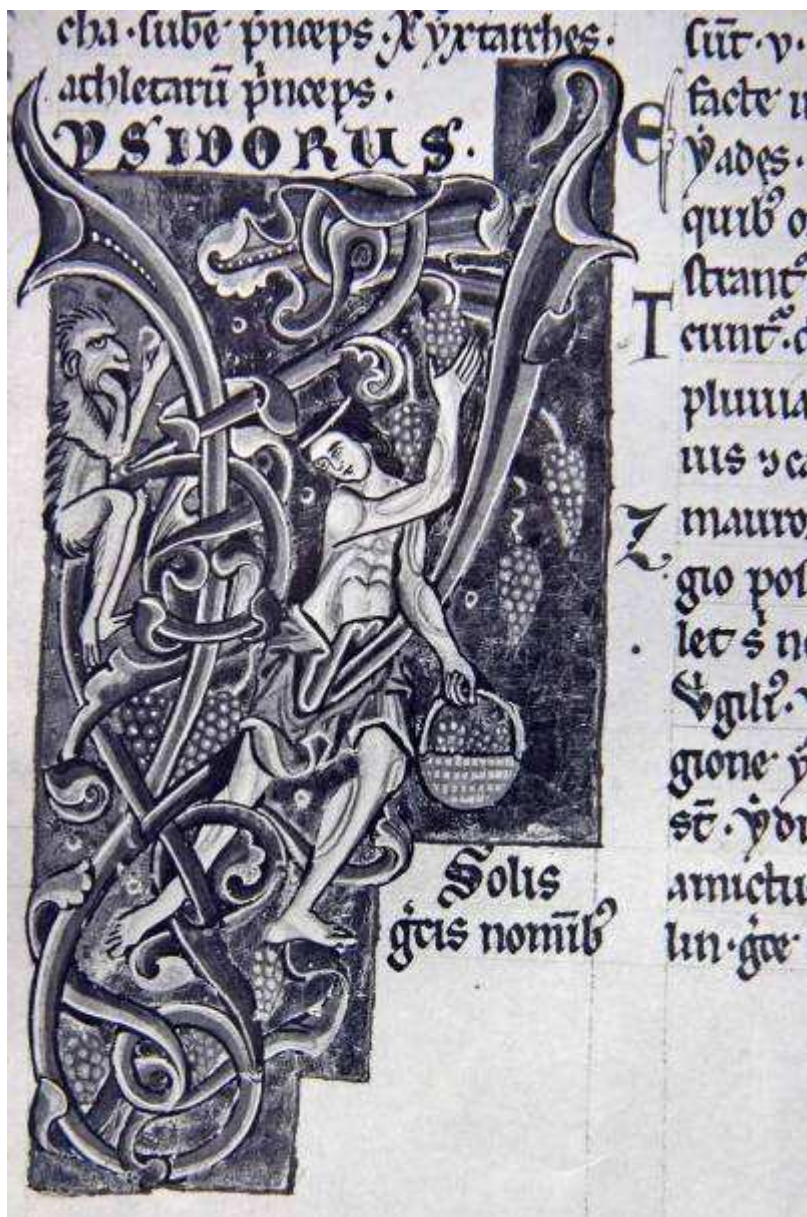 cha·sub̄e pͥnceps·Xyxtarches·
athletarū pͥnceps·
YSIDORUS·
Solis
gͥcis nomīb⁹
sūt·v·
facte
E ẏades·
quib⁹
strant᷑
T cunt᷑·
pluuia
uis
Z mauro
gio pos
let s̄
Ỽgili⁹·
gione ẏ
st̄·
amictu
lin·gͥce